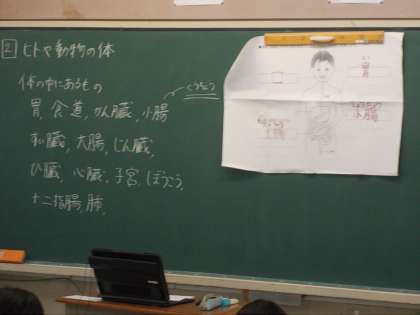 2 ヒトや動物の体
体の中にあるもの
胃、食道、かん臓、小腸
すい臓、大腸、じん臓、
ひ臓、心臓、子宮、ぼうこう、
十二指腸、肺、
胃
小腸